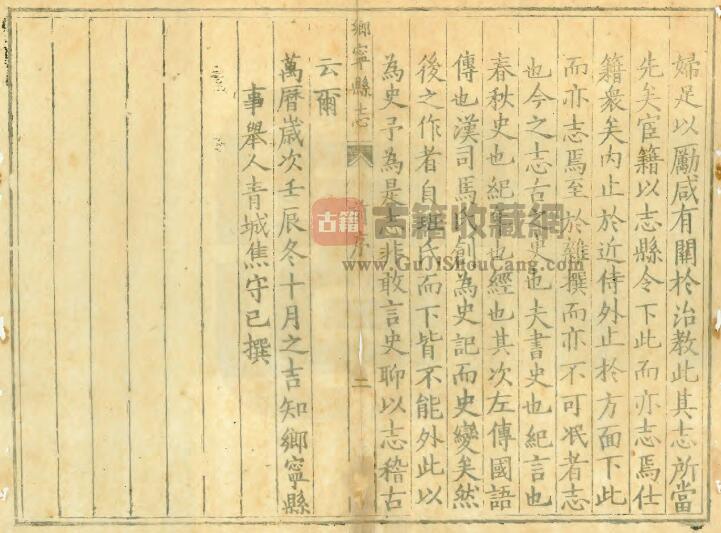 婦足以勵咸有關於治教此其志所當
先矣宦籍以志縣令下此而亦志焉仕
籍衆矣內止於近侍外止於方面下此
而亦志焉至於雜撰而亦不可泯者志
也今之志古之史也夫書史也紀言也
春秋史也紀事也經也其次左傳國語
傳也漢司馬氏創為史記而史變矣然
後之作者自班氏而下皆不能外此以
為史予為是志非敢言史聊以志稽古
鄉寧縣志 序 二
云爾
萬曆歲次壬辰冬十月之吉知鄉寧縣
事舉人青城焦守已撰
古籍 古籍收藏网
www.GuJiShouCang.com